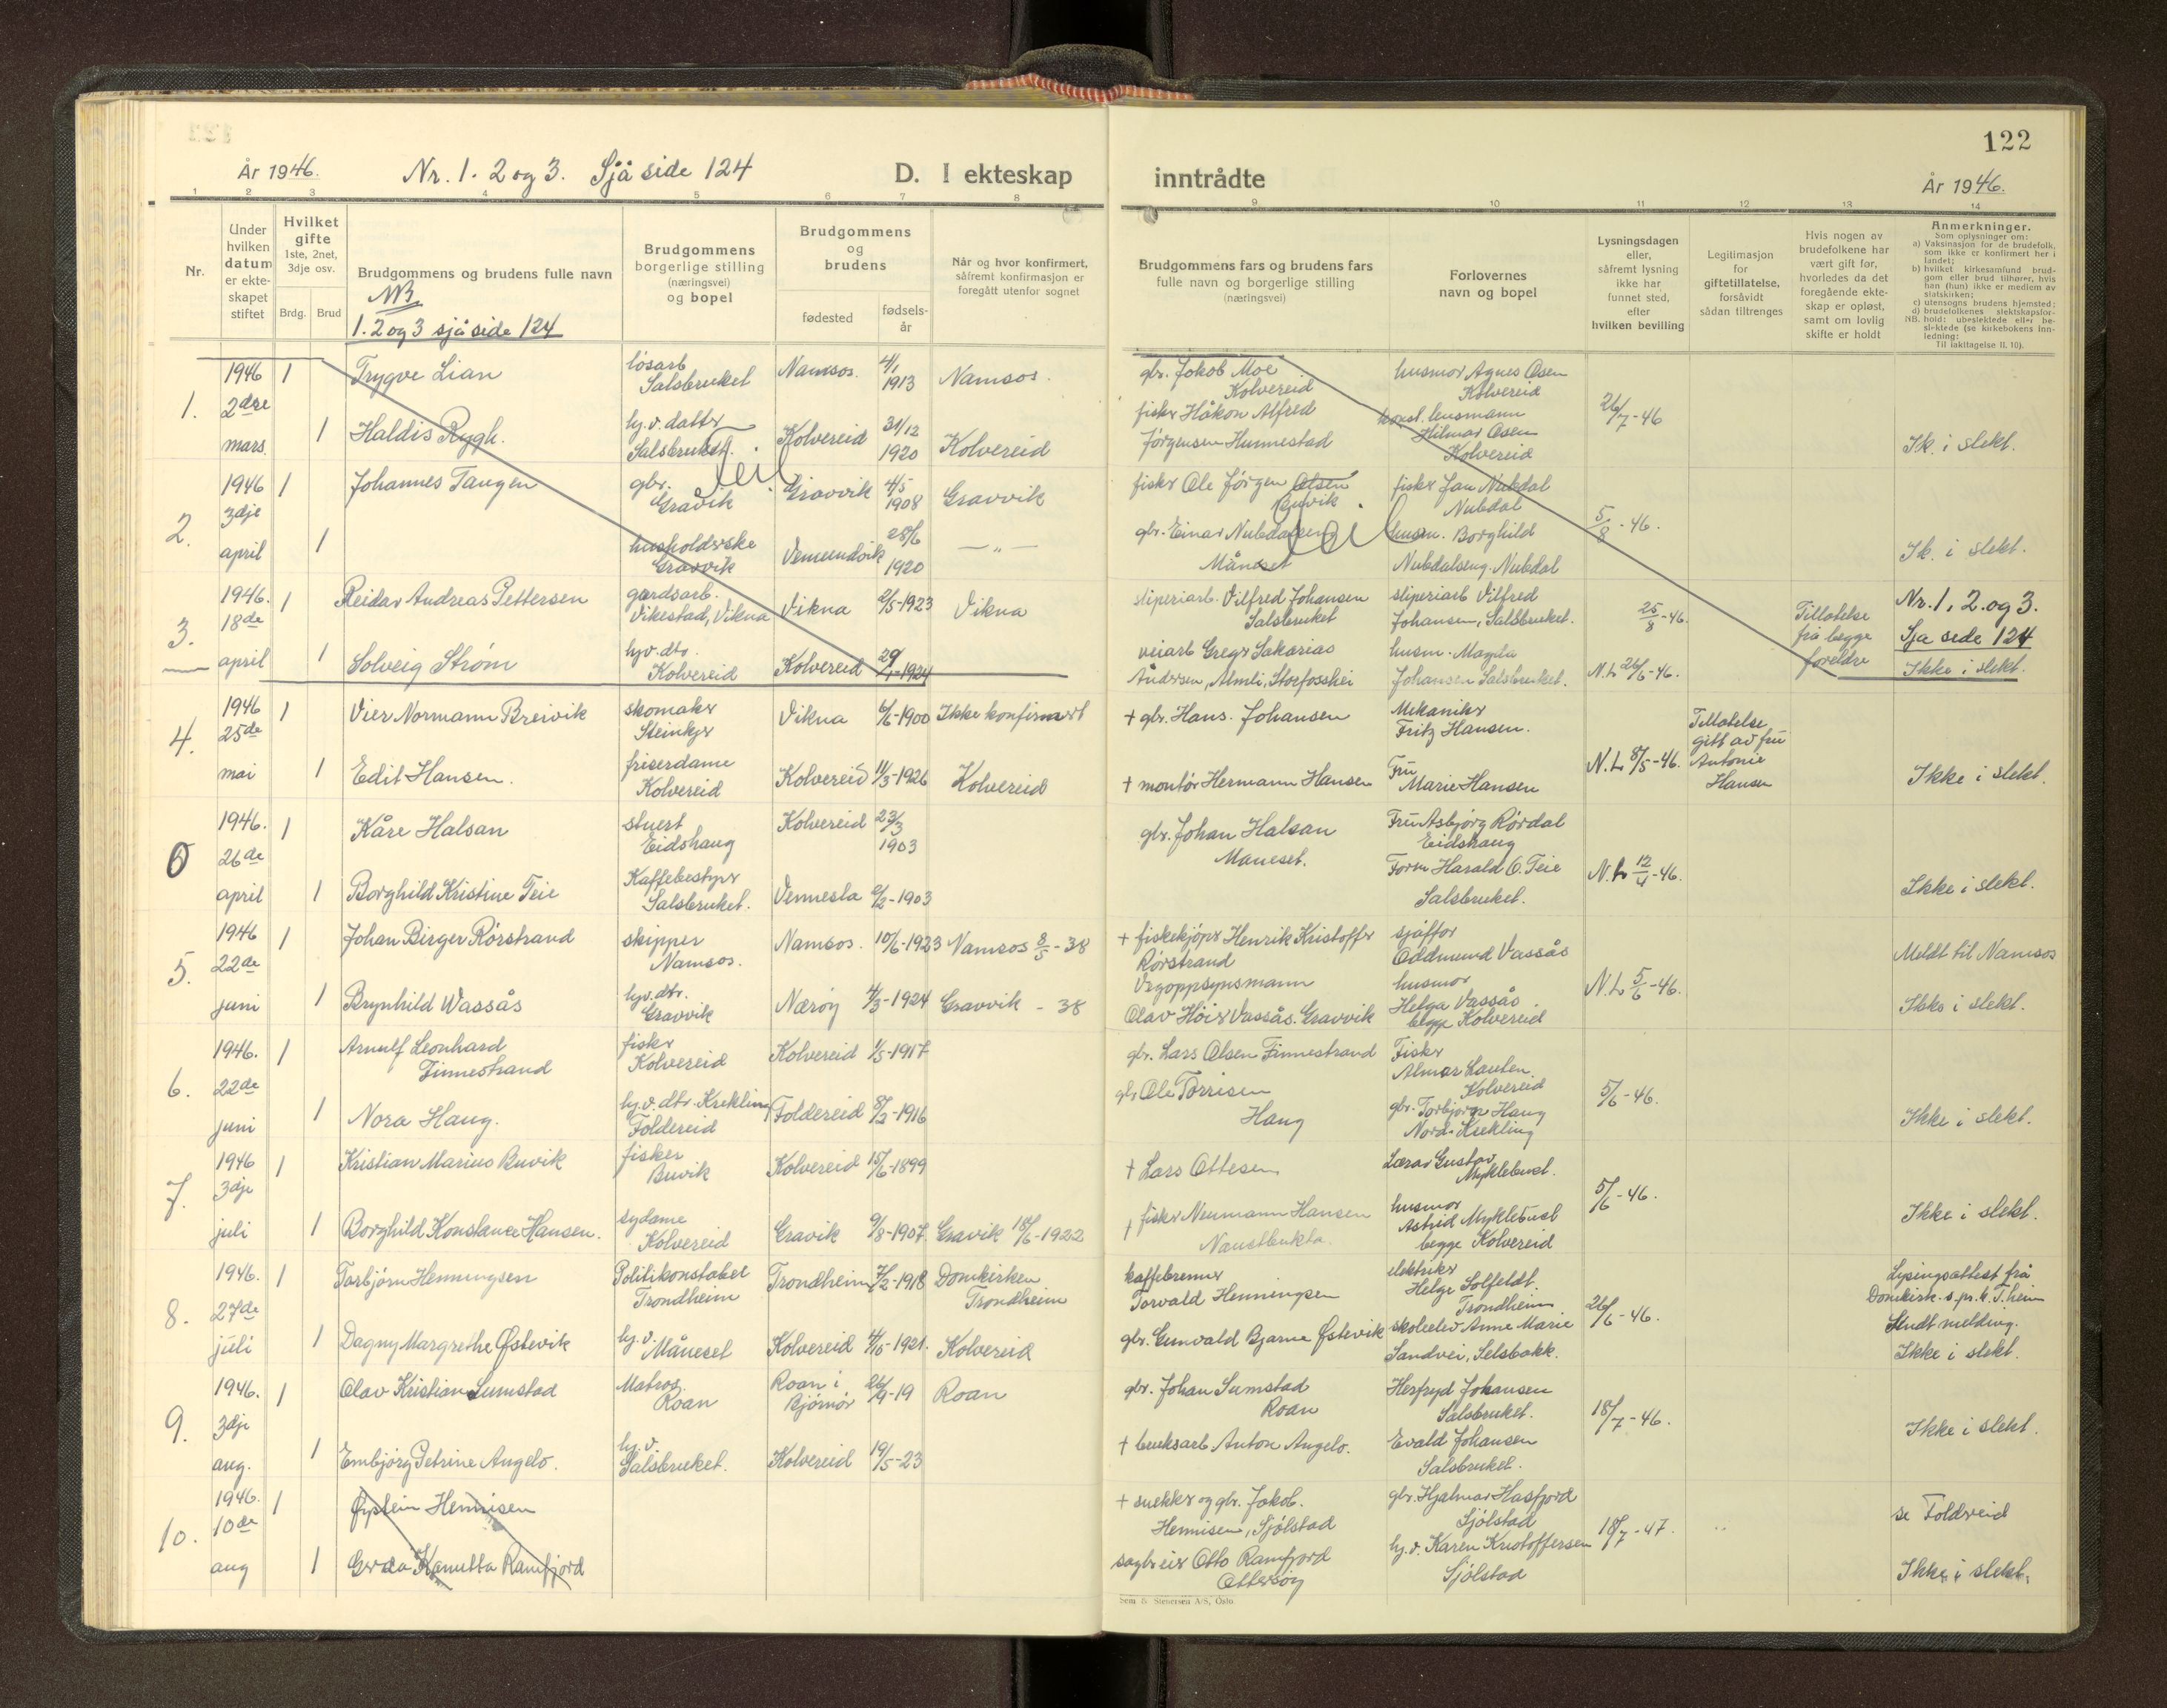 122
År 1946.
Nr. 1. 2 og 3. Sjå side 124
D. I ekteskap
inntrådte
År 1946.
1 2 3 4 5 6 7 8 9 10 11 12 13 14
Nr.
Under hvilken datum er ekteskapet stiftet
Hvilket gifte
1ste, 2net, 3dje osv.
Brdg.
Brud
Brudgommens og brudens fulle navn
NB
1. 2 og 3 sjå side 124
Brudgommens borgerlige stilling (næringsvei) og bopel
Brudgommens og brudens
fødested
fødsels-år
Når og hvor konfirmert, såfremt konfirmasjon er foregått utenfor sognet
Brudgommens fars og brudens fars fulle navn og borgerlige stilling (næringsvei)
Forlovernes navn og bopel
Lysningsdagen eller, såfremt lysning ikke har funnet sted, efter hvilken bevilling
Legitimasjon for giftetillatelse, forsåvidt sådan tiltrenges
Hvis nogen av brudefolkene har vært gift for, hvorledes da det foregående ekteskap er opløst, samt om lovlig skifte er holdt
Anmerkninger.
Som oplysninger om:
a) Vaksinasjon for de brudefolk, som ikke er konfirmert her i landet;
b) hvilket kirkesamfund brudgom eller brud tilhører, hvis han (hun) ikke er medlem av statskirken;
c) utensogns brudens hjemsted;
d) brudefolkenes slektskapsforhold: ubeslektede eller beslektede (se kirkebokens innledning:
NB.
Til iakttagelse II. 10).
1. 1946 2dre mars
1 Trygve Lian
løsarb Salsbruket
Namsos. 4/1 1913 Namsos.
gbr. Jokob Moe Kolvereid
husmor Agnes Osen Kolvereid
26/7-46
1 Haldis Rygh.
hj.v. datter Salsbruket.
Kolvereid 31/12 1920 Kolvereid
fisker Håkon Alfred Jørgensen Hunnestad
konst. lensmann Hilmar Osen Kolvereid
Ik. i slekt.
feil
2. 1946 3dje april
1 Johannes Tangen
gbr. Gravik
Gravvik 4/5 1908 Gravvik
fisker Ole Jörgen Olsen
fisker Jan Nubdal Nubdal
5/8-46.
1
husholderske Gravvik
Vemundvik 28/6 1920 — " —
gbr. Einar Nubdalseng Måneset
husm. Borghild Nubdalseng. Nubdal
Ik. i slekt.
feil
3. 1946. 18de april
1 Reidar Andreas Pettersen
gardsarb. Vikestad, Vikna
Vikna 2/5-1923 Vikna
sliperiarb. Vilfred Johansen Salsbruket
sliperiarb Vilfred Johansen, Salsbruket.
25/8-46.
Tillatelse frå begge foreldre
Nr. 1, 2. og 3.
Sja side 124
1 Solveig Strøm
hjv. dtr. Kolvereid
Kolvereid 29/1-1924
veiarb Greger Sakarias Andersen, Almli, Storfosshei
husm. Magda Johansen Salsbruket.
N.L 26/6-46.
Ikke i slekt.
4. 1946 25de mai
1 Vier Normann Breivik
skomaker Steinkjer
Vikna 6/6-1900 Ikke konfirmert
+ gbr. Hans. Johansen
Mekaniker Fritz Hansen.
N.L 8/5-46.
Tillatelse gitt av fru Antonie Hansen
1 Edit Hansen.
friserdame Kolvereid
Kolvereid 11/3-1926 Kolvereid
+ montör Hermann Hansen
Fru Marie Hansen
Ikke i slekt.
0 1946. 26de april
1 Kåre Halsan
stuert Eidshaug
Kolvereid 23/3 1903
gbr. Johan Halsan Maneset.
Fru Asbjørg Rørdal Eidshaug
N.L 12/4-46.
1 Borghild Kristine Teie
Kaffebestyrer Salsbruket.
Vennesla 2/2-1903
Form Harald O. Teie Salsbruket.
Ikke i slekt.
5. 1946 22de juni
1 Johan Birger Rörstrand
skipper Namsos.
Namsos. 10/6-1923 Namsos 8/5-38
+ fiskekjøper Henrik Kristoffer Rørstrand
sjåffør Oddmund Vassås
N.L 5/6-46.
Meldt til Namsos
1 Brynhild Wassås
hjv. dtr. Gravvik
Nærøy 4/3-1924 Gravvik - 38
Vegoppsynsmann Olav Höier Vassås. Gravvik
husmor Helga Vassås begge Kolvereid
Ikke i slekt.
6. 1946. 22de juni
1 Arnulf Leonhard Finnestrand
fisker Kolvereid
Kolvereid 1/5-1917
gbr. Lars Olsen Finnestrand
Fisker Almar Lauten. Kolvereid
5/6-46.
1 Nora Haug.
hj.v. dtr. Krekling Foldereid
Foldereid 8/2-1916
gbr Ole Torrisen Haug
gbr. Torbjørn Haug Nord-Krekling
Ikke i slekt.
7. 1946 3dje juli
1 Kristian Marius Buvik
fisker Buvik
Kolvereid 15/6-1899
+ Lars Ottesen
Lærer Gustav Myklebust.
5/6-46.
1 Borghild Konstance Hansen.
sydame Kolvereid
Gravik 9/8-1907. Gravik 18/6-1922
+ fisker Neumann Hansen Naustbukta.
husmor Astrid Myklebust begge Kolvereid
Ikke i slekt.
8. 1946. 27de juli
1 Torbjörn Henningsen
Politikonstabel Trondheim
Trondheim 7/2-1918 Domkirken Trondheim
kaffebrenner Torvald Henningsen
elektriker Helge Solfeldt. Trondheim
26/6-46.
Lysingsattest frå Domkirk. s.pr.k. T.heim
Sendt melding.
1 Dagny Margrethe Østevik
hj.v. Måneset
Kolvereid 4/6-1921. Kolvereid
gbr. Gunvald Bjarne Østevik
skoleelev Anne Marie Sandvei, Selsbakk.
Ikke i slekt.
9. 1946. 3dje aug.
1 Olav Kristian Sumstad
Matros. Roan
Roan i Bjørnør 26/9-19 Roan
gbr. Johan Sumstad Roan
Herfryd Johansen Salsbruket.
18/7-46.
1 Embjørg Petrine Angelo.
hj.v. Salsbruket.
Kolvereid 19/5-23
+ bruksarb. Anton Angelo.
Evald Johansen Salsbruket.
Ikke i slekt.
10. 1946. 10de aug
1 Øystein Hennisen
+ snekker og gbr. Jakob. Hennisen, Sjølstad
gbr. Hjalmar Hasfjord Sjölstad
18/7-47.
se Foldreid
1 Gerda Kanutta Ramfjord
sagbr. eier Otto Ramfjord Ottersøy
hj.v. Karen Kristoffersen Sjölstad
Ikke i slekt.
Sem & Stenersen A/S, Oslo.